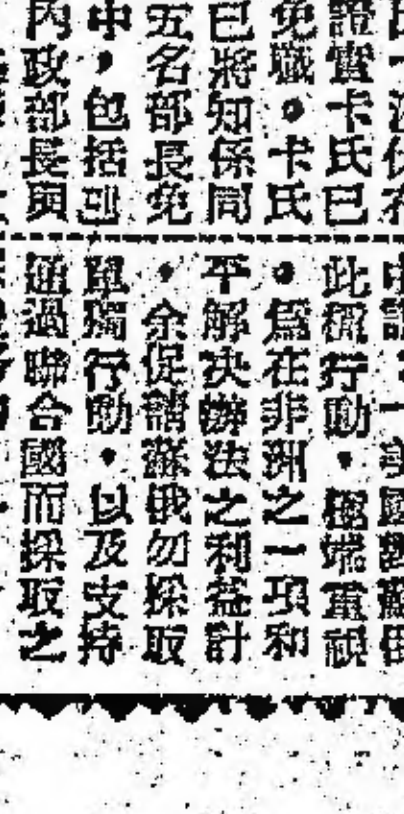 證實卡氏已
免職。卡氏
已將知係同
五名部長免
中，包括
內政部長與
此種行動，極端重視
。為在非洲之一項和
平解決辦法之利益計
，余促請蘇俄勿採取
單獨行動，以及支持
通過聯合國而採取之